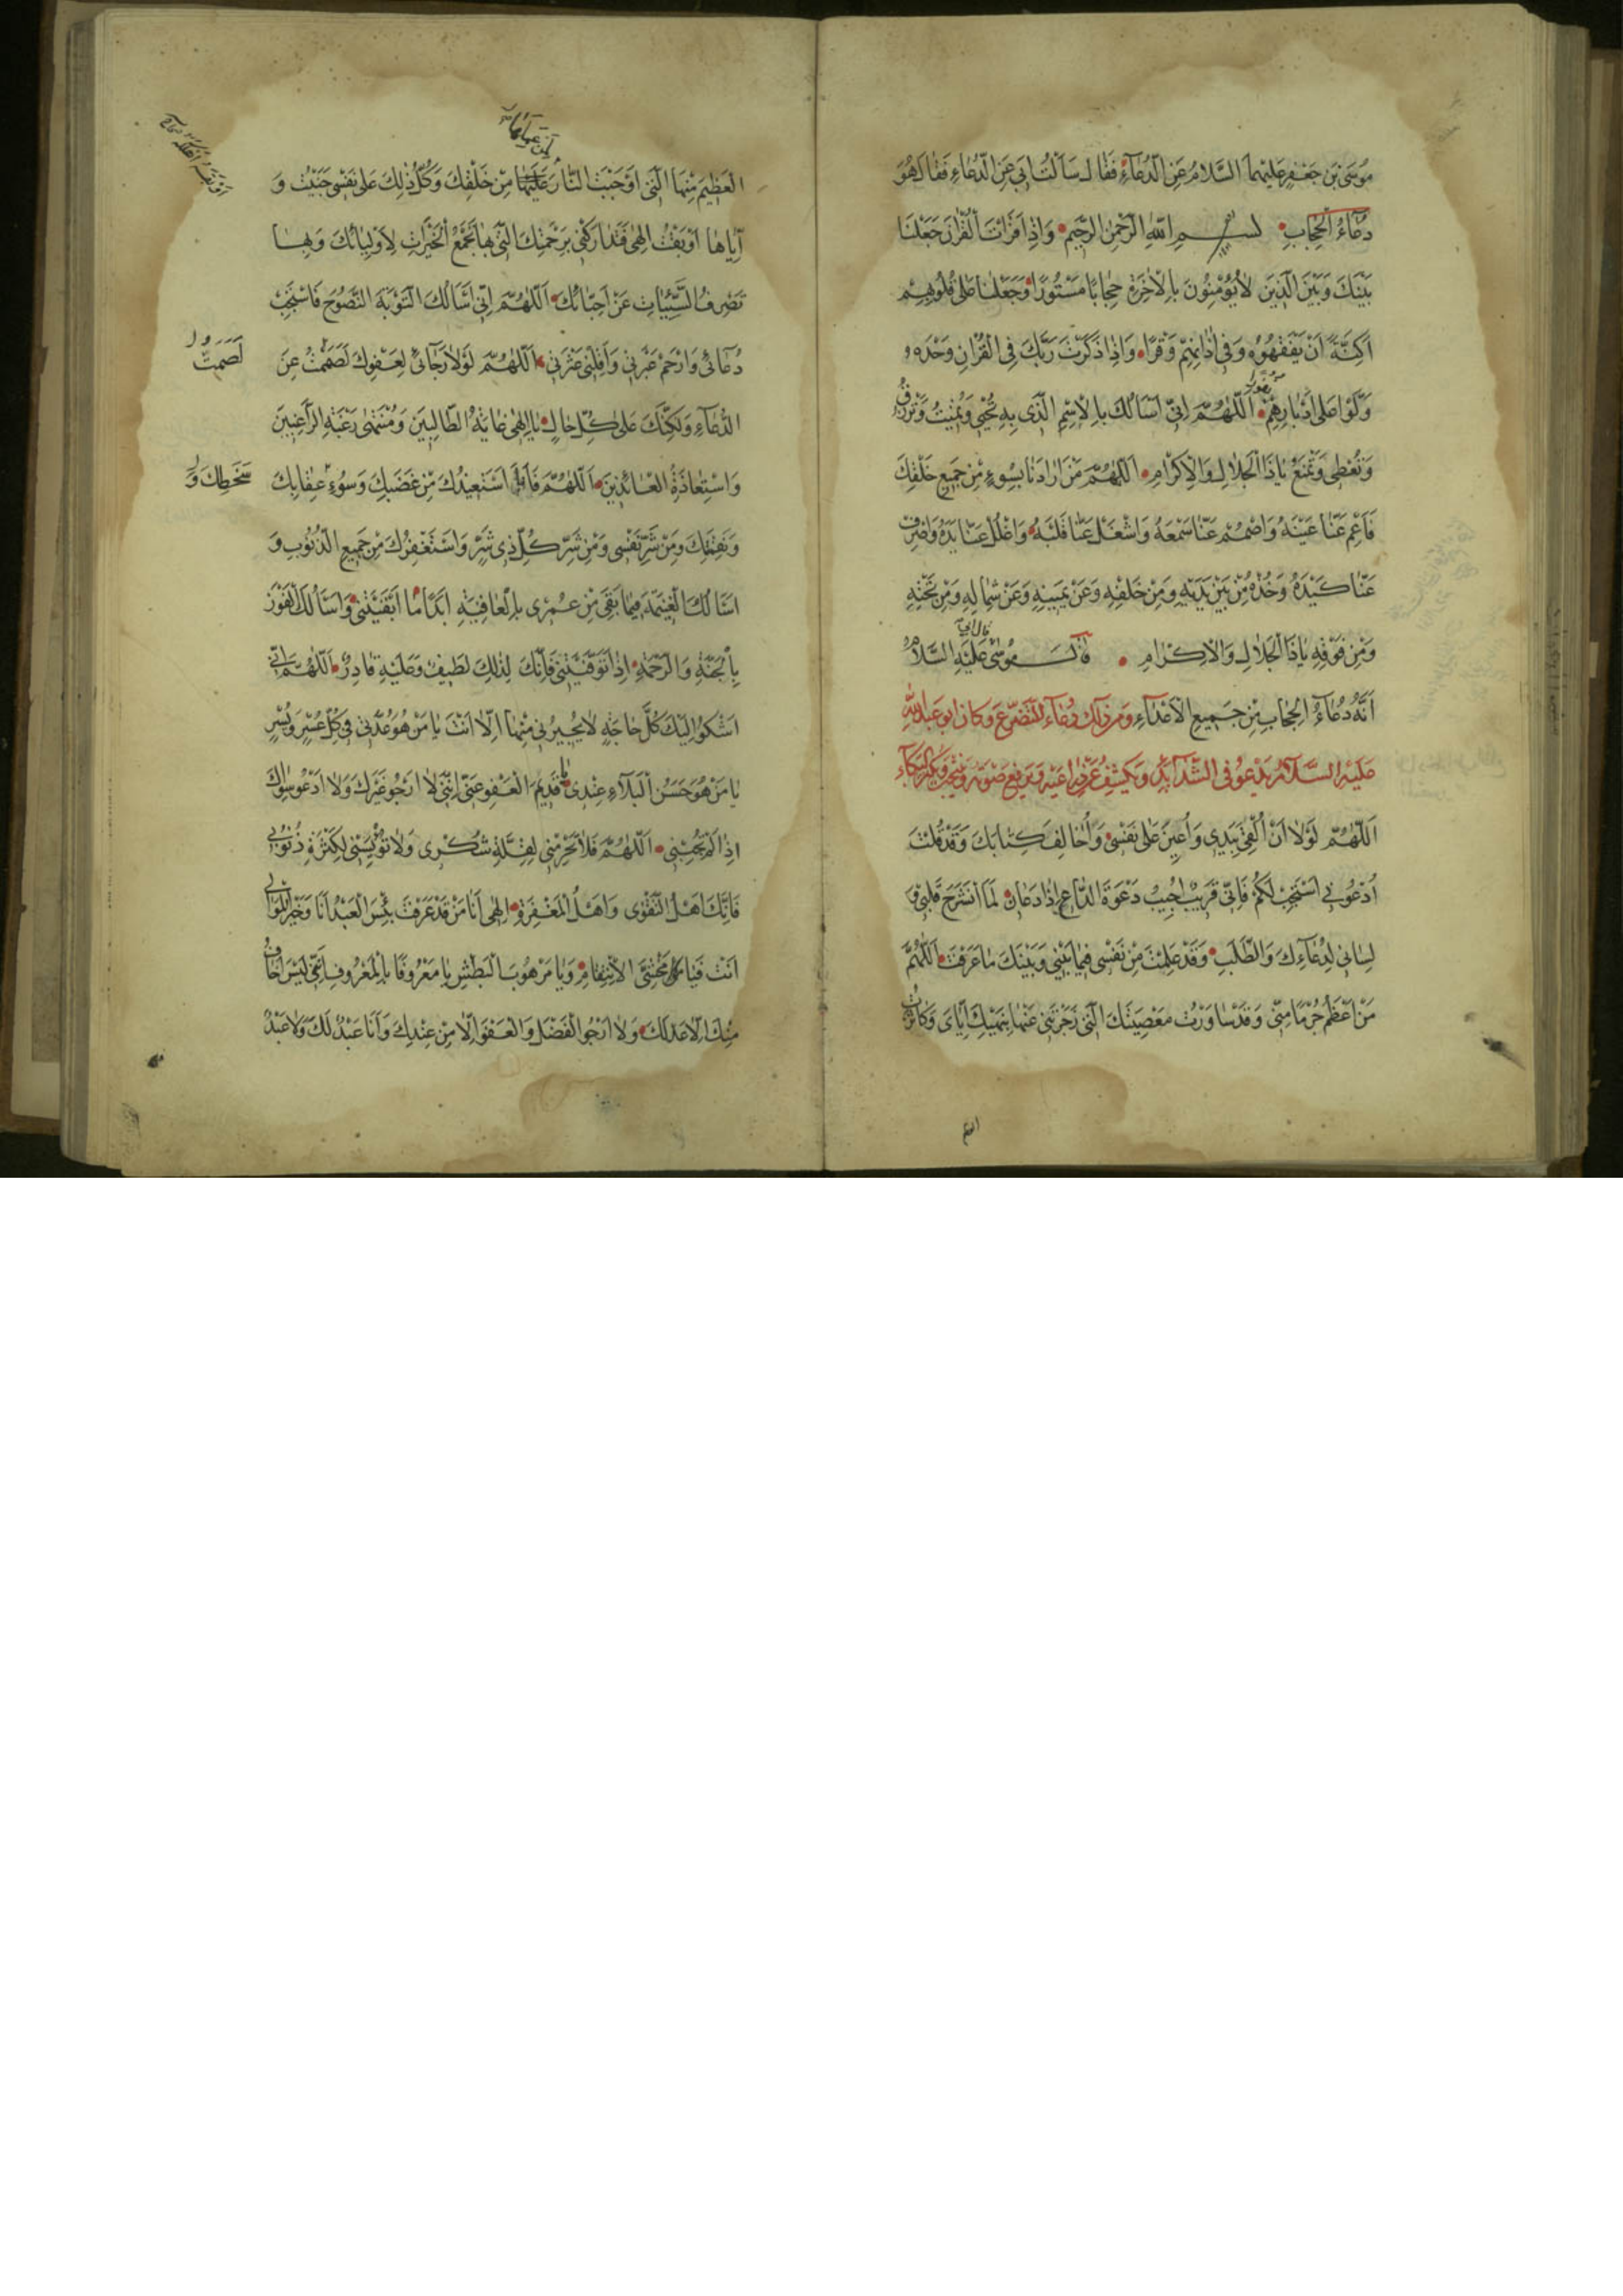 مُوسَى بْنَ جَعْفَرٍ عَلَيْهِمَا السَّلَامُ عَنِ الدُّعَاءِ فَقَالَ سَأَلْتُ أَبِي عَنِ الدُّعَاءِ فَقَالَ هُوَ
دُعَاءُ الْحِجَابِ بِسْمِ اللهِ الرَّحْمٰنِ الرَّحِيمِ وَإِذَا قَرَأْتَ الْقُرْآنَ جَعَلْنَا
بَيْنَكَ وَبَيْنَ الَّذِينَ لَا يُؤْمِنُونَ بِالْآخِرَةِ حِجَابًا مَسْتُورًا وَجَعَلْنَا عَلَى قُلُوبِهِمْ
أَكِنَّةً أَنْ يَفْقَهُوهُ وَفِي آذَانِهِمْ وَقْرًا وَإِذَا ذَكَرْتَ رَبَّكَ فِي الْقُرْآنِ وَحْدَهُ
وَلَّوْا عَلَى أَدْبَارِهِمْ نُفُورًا اللّٰهُمَّ إِنِّي أَسْأَلُكَ بِالْاِسْمِ الَّذِي بِهِ تُحْيِي وَتُمِيتُ وَتَرْزُقُ
وَتُعْطِي وَتَمْنَعُ يَا ذَا الْجَلَالِ وَالْإِكْرَامِ اللّٰهُمَّ مَنْ أَرَادَنَا بِسُوءٍ مِنْ جَمِيعِ خَلْقِكَ
فَأَعْمِ عَنَّا عَيْنَهُ وَاصْمُمْ عَنَّا سَمْعَهُ وَاشْغَلْ عَنَّا قَلْبَهُ وَاغْلُلْ عَنَّا يَدَهُ وَاصْرِفْ
عَنَّا كَيْدَهُ وَخُذْهُ مِنْ بَيْنِ يَدَيْهِ وَمِنْ خَلْفِهِ وَعَنْ يَمِينِهِ وَعَنْ شِمَالِهِ وَمِنْ تَحْتِهِ
وَمِنْ فَوْقِهِ يَا ذَا الْجَلَالِ وَالْإِكْرَامِ قَالَ مُوسَى عَلَيْهِ السَّلَامُ قال أبي
أَنَّهُ دُعَاءُ الْحِجَابِ مِنْ جَمِيعِ الْأَعْدَاءِ وَمِنْ ذَلِكَ دُعَاءُ التَّضَرُّعِ وَكَانَ أَبُو عَبْدِ اللهِ
عَلَيْهِ السَّلَامُ يَدْعُو فِي الشَّدَائِدِ وَيَكْشِفُ عَنْ ذِرَاعَيْهِ وَيَرْفَعُ صَوْتَهُ وَيَنْتَحِبُ وَيُكْثِرُ الْبُكَاءَ
اللّٰهُمَّ لَوْلَا أَنْ أُلْقِيَ بِيَدِي وَأُعِينَ عَلَى نَفْسِي وَأُخَالِفَ كِتَابَكَ وَقَدْ قُلْتَ
اُدْعُونِي أَسْتَجِبْ لَكُمْ فَإِنِّي قَرِيبٌ أُجِيبُ دَعْوَةَ الدَّاعِ إِذَا دَعَانِ لَمَا انْشَرَحَ قَلْبِي وَ
لِسَانِي لِدُعَائِكَ وَالطَّلَبِ وَقَدْ عَلِمْتُ مِنْ نَفْسِي فِيمَا بَيْنِي وَبَيْنَكَ مَا عَرَفْتَ اللّٰهُمَّ
مَنْ أَعْظَمُ جُرْمًا مِنِّي وَقَدْ سَاوَرْتُ مَعْصِيَتَكَ الَّتِي زَجَرْتَنِي عَنْهَا بِنَهْيِكَ إِيَّايَ وَكَاثَرْتُ
الْعَظِيمَ مِنْهَا الَّتِي أَوْجَبْتَ النَّارَ عَلَيْهَا مِنْ خَلْقِكَ وَكُلُّ ذَلِكَ عَلَى نَفْسِي جَنَيْتُ وَ
إِيَّاهَا أَوْبَقْتُ إِلٰهِي فَتَدَارَكْنِي بِرَحْمَتِكَ الَّتِي بِهَا تَجْمَعُ الْخَيْرَاتِ لِأَوْلِيَائِكَ وَبِهَا
تَصْرِفُ السَّيِّئَاتِ عَنْ أَحِبَّائِكَ اللّٰهُمَّ إِنِّي أَسْأَلُكَ التَّوْبَةَ النَّصُوحَ فَاسْتَجِبْ
دُعَائِي وَارْحَمْ عَبْرَتِي وَأَقِلْنِي عَثْرَتِي اللّٰهُمَّ لَوْلَا رَجَائِي لِعَفْوِكَ لَصَمَتُّ عَنِ
لَصَمَتُّ
الدُّعَاءِ وَلَكِنَّكَ عَلَى كُلِّ حَالٍ يَا إِلٰهِي غَايَةُ الطَّالِبِينَ وَمُنْتَهَى رَغْبَةِ الرَّاغِبِينَ
وَاسْتِعَاذَةُ الْعَائِذِينَ اللّٰهُمَّ فَأَنَا أَسْتَعِيذُكَ مِنْ غَضَبِكَ وَسُوءِ عِقَابِكَ
سَخَطِكَ وَ
وَنَقِمَتِكَ وَمِنْ شَرِّ نَفْسِي وَمِنْ شَرِّ كُلِّ ذِي شَرٍّ وَأَسْتَغْفِرُكَ مِنْ جَمِيعِ الذُّنُوبِ وَ
أَسْأَلُكَ الْغَنِيمَةَ فِيمَا بَقِيَ مِنْ عُمْرِي بِالْعَافِيَةِ أَبَدًا مَا أَبْقَيْتَنِي وَأَسْأَلُكَ الْفَوْزَ
بِالْجَنَّةِ وَالرَّحْمَةِ إِذَا تَوَفَّيْتَنِي فَإِنَّكَ لِذَلِكَ لَطِيفٌ وَعَلَيْهِ قَادِرٌ اللّٰهُمَّ إِنِّي
أَشْكُو إِلَيْكَ كُلَّ حَاجَةٍ لَا يُجِيرُنِي مِنْهَا إِلَّا أَنْتَ يَا مَنْ هُوَ عُدَّتِي فِي كُلِّ عُسْرٍ وَيُسْرٍ
يَا مَنْ هُوَ حَسَنُ الْبَلَاءِ عِنْدِي يَا قَدِيمَ الْعَفْوِ عَنِّي إِنَّنِي لَا أَرْجُو غَيْرَكَ وَلَا أَدْعُو سِوَاكَ
إِذَا لَمْ تُجِبْنِي اللّٰهُمَّ فَلَا تَحْرِمْنِي لِقِلَّةِ شُكْرِي وَلَا تُؤْيِسْنِي لِكَثْرَةِ ذُنُوبِي
فَإِنَّكَ أَهْلُ التَّقْوَى وَأَهْلُ الْمَغْفِرَةِ إِلٰهِي أَنَا مَنْ قَدْ عَرَفْتَ بِئْسَ الْعَبْدُ أَنَا وَخَيْرُ الْمَوَالِي
أَنْتَ فَيَا مَخْشِيَّ الْاِنْتِقَامِ وَيَا مَرْهُوبَ الْبَطْشِ يَا مَعْرُوفًا بِالْمَعْرُوفِ إِنِّي لَيْسَ أَخَافُ
مِنْكَ إِلَّا عَدْلَكَ وَلَا أَرْجُو الْفَضْلَ وَالْعَفْوَ إِلَّا مِنْ عِنْدِكَ وَأَنَا عَبْدٌ لَكَ وَلَا عَبْدٌ